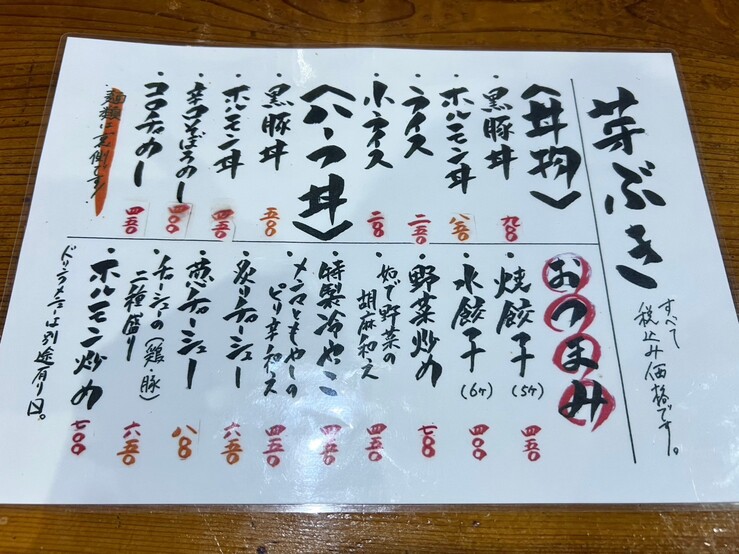 芽ぶき
すべて
税込み価格です。
〈丼物〉
・黒豚丼 九〇〇
・ホルモン丼 八五〇
・ライス 二五〇
・小ライス 二〇〇
〈ハーフ丼〉
・黒豚丼 五〇〇
・ホルモン丼 四五〇
・辛口そぼろめし 四〇〇
・コロチャめし 四五〇
麺類は裏側です!
おつまみ
・焼餃子(5ケ) 四五〇
・水餃子(6ケ) 四〇〇
・野菜炒め 七〇〇
・ゆで野菜の
胡麻和え 四五〇
・特製冷やっこ 四五〇
・メンマともやしの
ピリ辛和え 四五〇
・炙りチャーシュー 六五〇
・葱チャーシュー 八〇〇
・チャーシューの
二種盛り(鶏、豚) 六五〇
・ホルモン炒め 七〇〇
ドリンクメニューは別途有り〼。